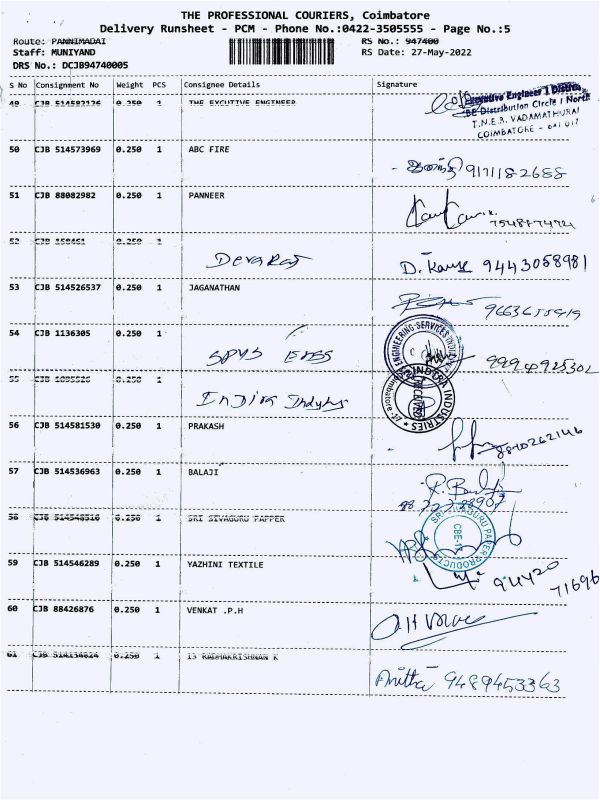 THE PROFESSIONAL COURIERS, Coimbatore
Delivery Runsheet - PCM - Phone No.:0422-3505555 - Page No.:5
Route: PANNIMADAI RS No.: 947400
Staff: MUNIYAND RS Date: 27-May-2022
DRS No.: DCJB94740005
S No Consignment No Weight PCS Consignee Details Signature
49 CJB 514582126 0.250 1 THE EXCUTIVE ENGINEER
Executive Engineer / Distbn
BE Distribution Circle / North
T.N.E.B. VADAMATHURAI
COIMBATORE - 641 017
50 CJB 514573969 0.250 1 ABC FIRE
9171182688
51 CJB 88082982 0.250 1 PANNEER
52 CJB 158461 0.250 1
Devaraj D. 9443058981
53 CJB 514526537 0.250 1 JAGANATHAN
54 CJB 1136305 0.250 1
ENGINEERING SERVICES INDIA
55 0.250 1
Indira INDIRA INDUSTRIES
RECEIVED
Coimbatore
56 CJB 514581530 0.250 1 PRAKASH
8870262146
57 CJB 514536963 0.250 1 BALAJI
58 CJB 514548516 0.250 1 SRI SIVAGURU PAPPER
SRI SIVAGURU PAPER PRODUCTS
CBE-17
59 CJB 514546289 0.250 1 YAZHINI TEXTILE
94420
71696
60 CJB 88426876 0.250 1 VENKAT .P.H
61 CJB 514134824 0.250 1 13 RADHAKRISHNAN K
Anitha 9489453363